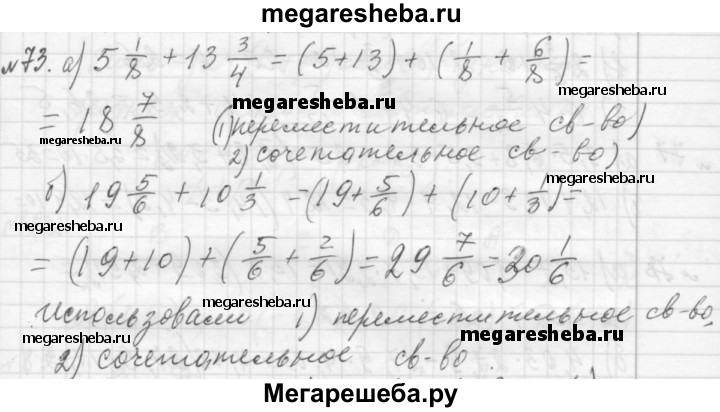 megaresheba.ru
№73. а) 5 1/8 + 13 3/4 = (5+13) + (1/8 + 6/8) =
= 18 7/8 (1) переместительное св-во)
megaresheba.ru
megaresheba.ru
2) сочетательное св-во)
б) 19 5/6 + 10 1/3 = (19+5/6) + (10+1/3) =
megaresheba.ru
megaresheba.ru
= (19+10) + (5/6 + 2/6) = 29 7/6 = 30 1/6
megaresheba.ru
Использовали 1) переместительное св-во,
megaresheba.ru
2) сочетательное св-во
Мегарешеба.ру